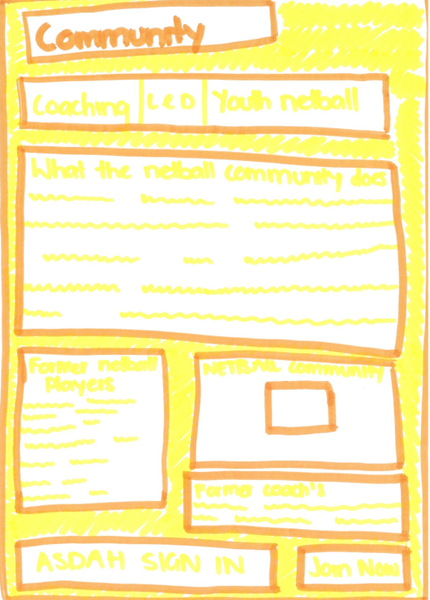 Community
Coaching L & D Youth netball
What the netball community does
Former netball
Players
NETBALL community
Former coach's
ASDAH SIGN IN
Join Now